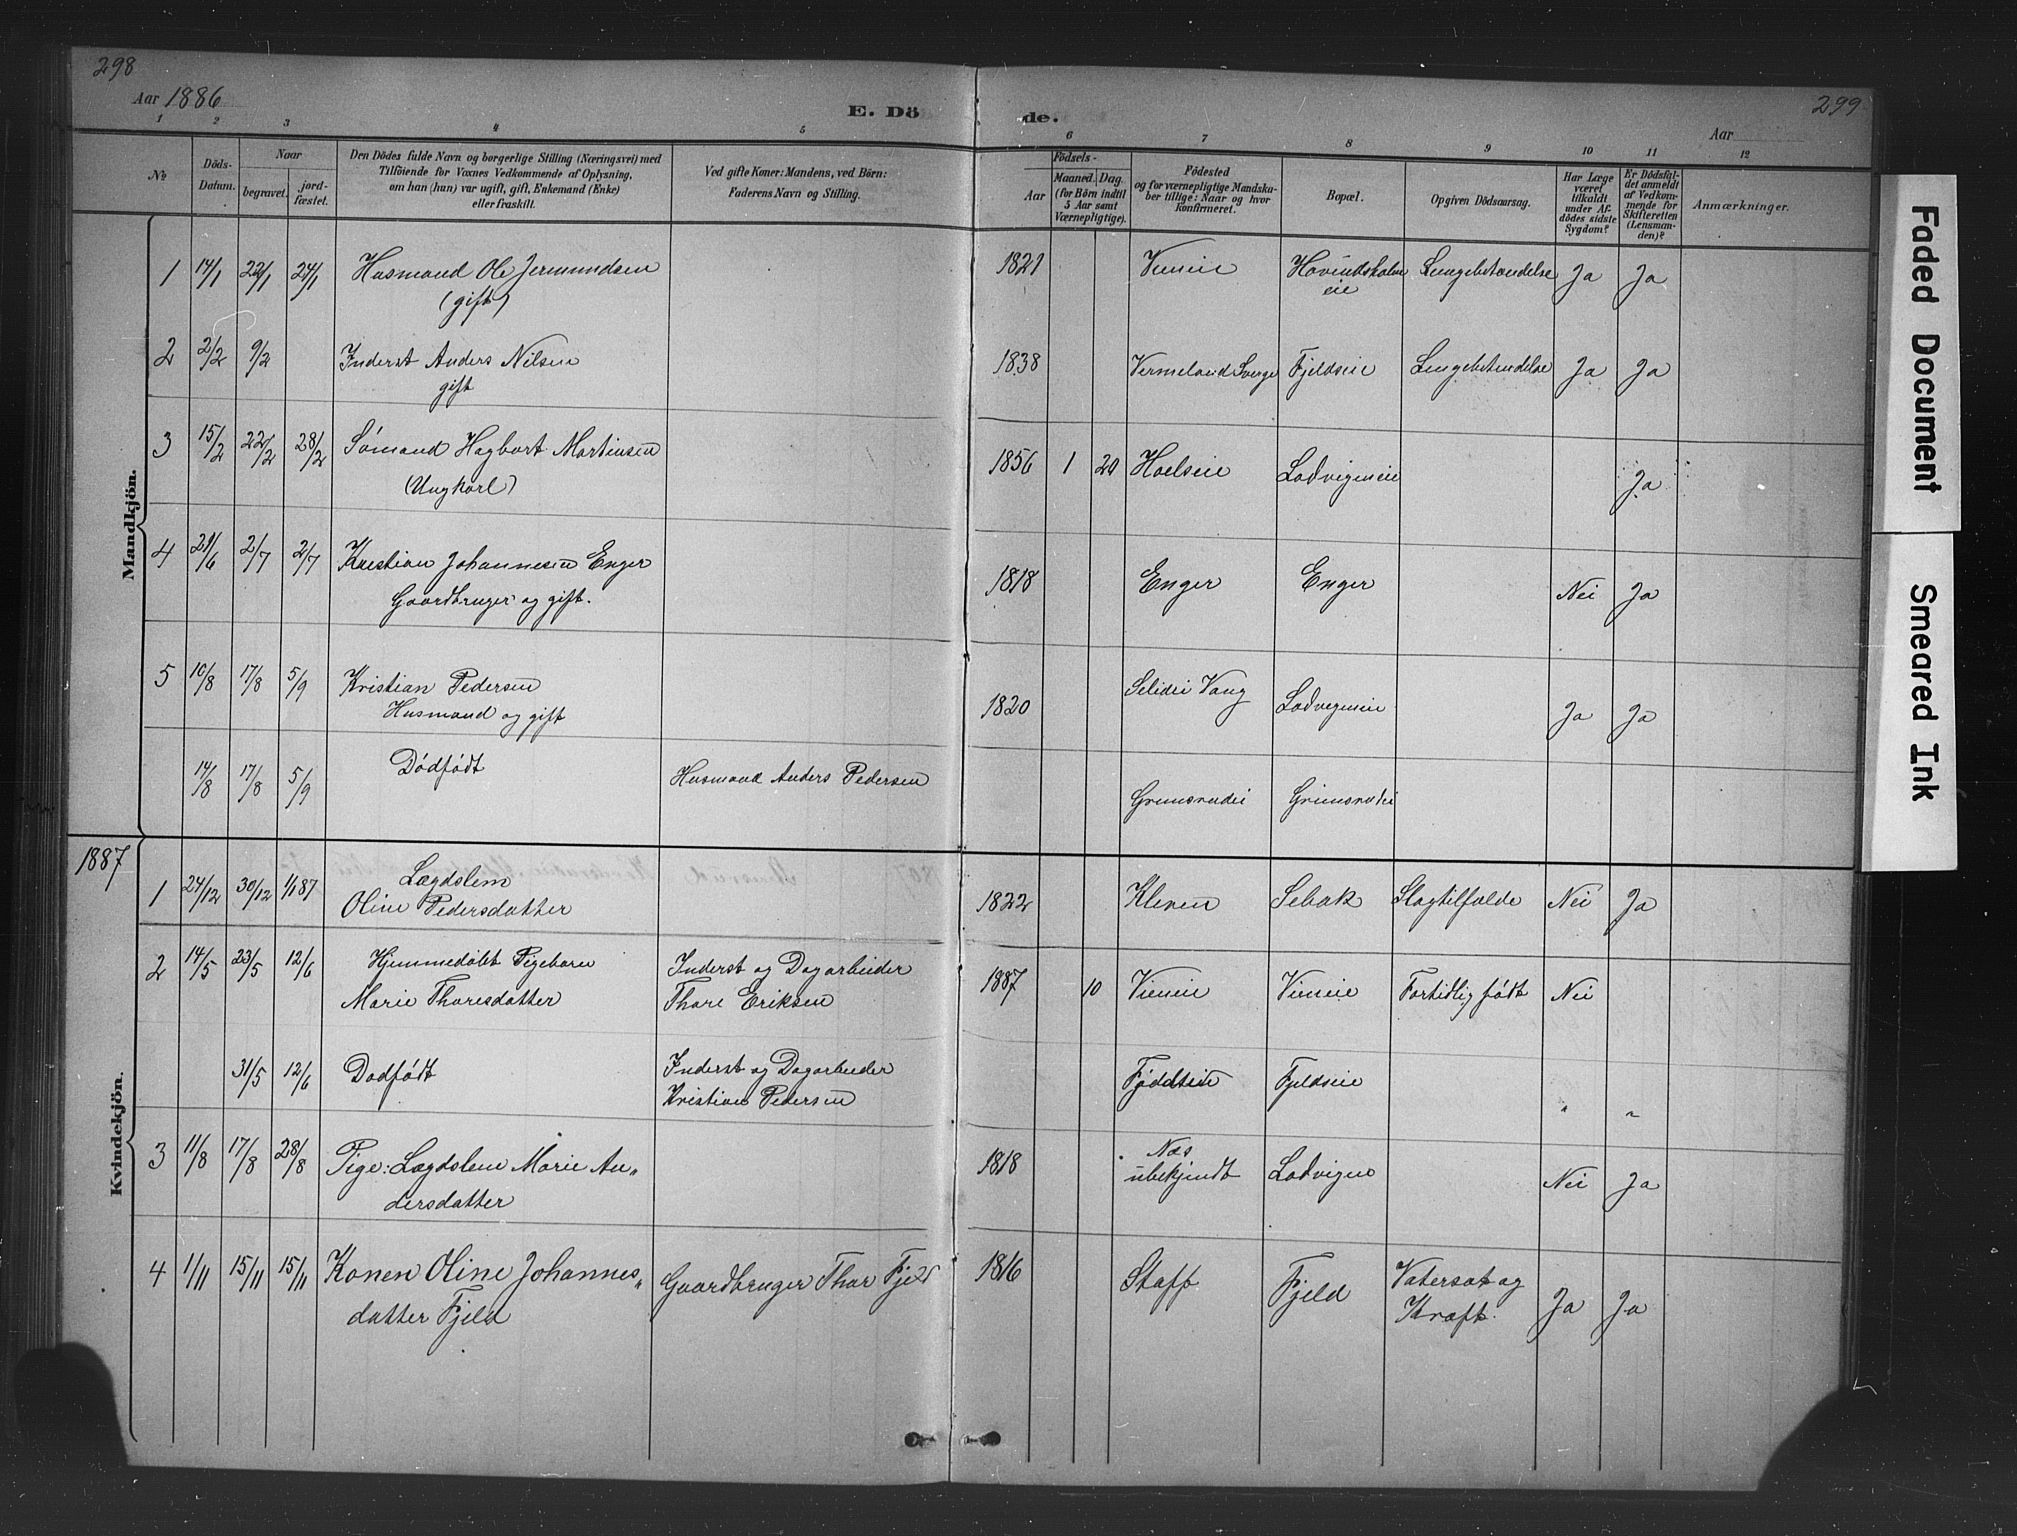 298
Aar 1886
E. Dö
de.
299
Aar
1 2 3 4 5 6 7 8 9 10 11 12
№
Döds-
Datum.
Naar
begravet.
jord-
fæstet.
Den Dödes fulde Navn og borgerlige Stilling (Næringsvei) med
Tilföiende for Voxnes Vedkommende af Oplysning,
om han (hun) var ugift, gift, Enkemand (Enke)
eller fraskilt.
Ved gifte Koner: Mandens, ved Börn:
Faderens Navn og Stilling.
Födsels-
Aar
Maaned.
Dag.
(for Börn indtil
5 Aar samt
Værnepligtige).
Födested
og for værnepligtige Mandska-
ber tillige: Naar og hvor
konfirmeret.
Bopæl.
Opgiven Dödsaarsag.
Har Læge
været
tilkaldt
under Af-
dödes sidste
Sygdom?
Er Dödsfal-
det anmeldt
af Vedkom-
mende for
Skifteretten
(Lensman-
den)?
Anmærkninger.
Mandkjön.
1 14/1 22/1 24/1 Husmand Ole Jermundsen 1821 Vieneie Lungebetændelse Ja Ja
(gift) eie
2 2/2 9/2 Inderst Anders Nilsen 1838 Vermeland Sverge Fjeldseie Lungebetændelse Ja Ja
gift
3 15/2 22/2 28/2 Sømand Hagbart Martinsen 1856 1 20 Hoelseie Lodvigeneie Ja
(Ungkarl)
4 21/6 2/7 2/7 Kristian Johannesen Enger 1818 Enger Enger Nei Ja
Gaardbruger og gift.
5 10/8 17/8 5/9 Kristian Pedersen 1820 Vang Lodvigeneie Ja Ja
Husmand og gift
14/8 17/8 5/9 Dødfødt Husmand Anders Pedersen Grimsrudei Grimsrudei
1887
Kvindekjön.
1 24/12 30/12 1/1 87 Lægdslem
Oline Pedersdatter 1822 Kleven Sebak Slagtilfælde Nei Ja
2 14/5 23/5 12/6 Hjemmedøbt Pigebarn Inderst og Dagarbeider
Marie Thoresdatter Thore Eriksen 1887 10 Vieneie Vieneie Fortidlig født Nei
31/5 12/6 Dødfødt Inderst og Dagarbeider
Kristian Pedersen Fjeldseie " "
3 11/8 17/8 28/8 Pige: Lægdslem Marie An„
dersdatter 1818 Næs
ubekjendt Lodvigen Nei Ja
4 1/11 15/11 15/11 Konen Oline Johannes„
datter Fjeld Gaardbruger Thor Fjeld 1816 Staff Fjeld Vatersot og
Kræft. Ja Ja
Faded Document
Smeared Ink